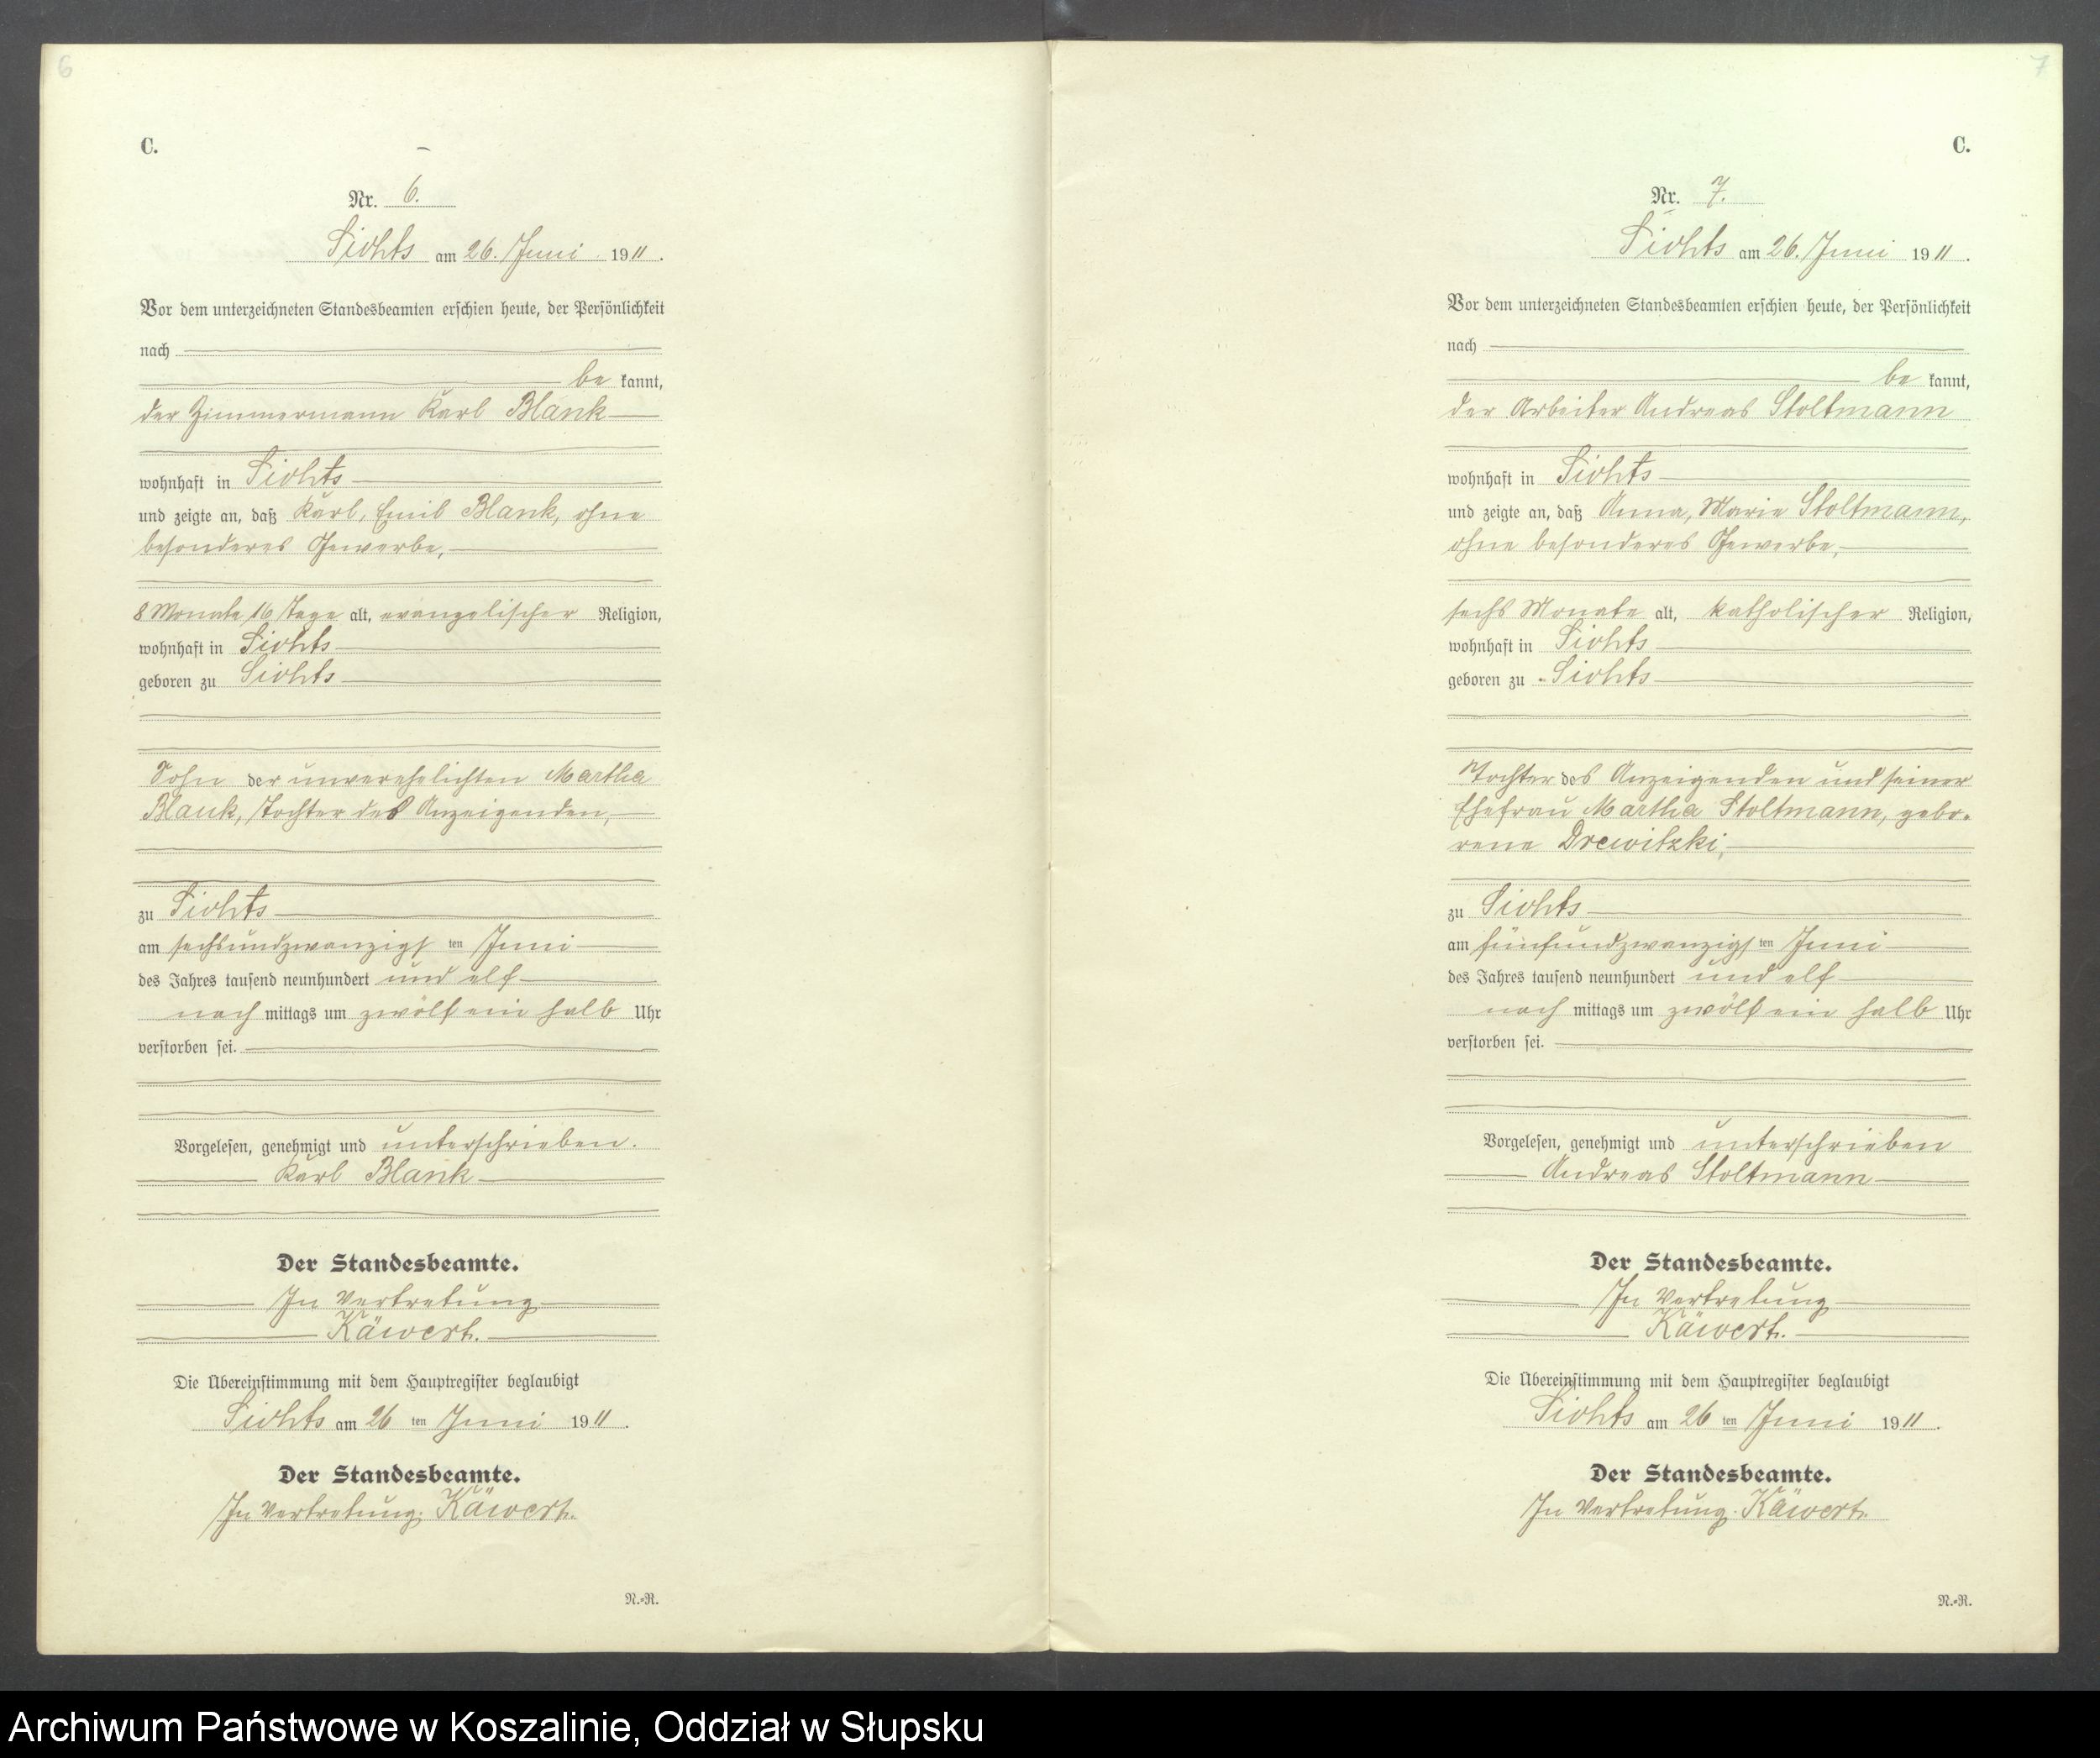 6
C.
Nr. 6.
Lichts am 26. Juni 1911.
Vor dem unterzeichneten Standesbeamten erschien heute, der Persönlichkeit
nach
be kannt,
der Zimmermann Karl Blank
wohnhaft in
und zeigte an, daß Karl, Emil Blank, ohne
besonderes Gewerbe,
8 Monate 16 Tage alt, evangelischer Religion,
wohnhaft in
geboren zu
Sohn der unverehelichten Martha
Blank, Tochter des Anzeigenden,
zu
am sechsundzwanzigsten Juni
des Jahres tausend neunhundert und elf
nach mittags um zwölf ein halb Uhr
verstorben sei.
Vorgelesen, genehmigt und unterschrieben.
Karl Blank
Der Standesbeamte.
In Vertretung
Käwert.
Die Übereinstimmung mit dem Hauptregister beglaubigt
am 26 ten Juni 1911.
Der Standesbeamte.
In Vertretung: Käwert.
N.-R.
7
C.
Nr. 7.
am 26. Juni 1911.
Vor dem unterzeichneten Standesbeamten erschien heute, der Persönlichkeit
nach
be kannt,
der Arbeiter Andreas Stoltmann
wohnhaft in
und zeigte an, daß Anna, Marie Stoltmann,
ohne besonderes Gewerbe,
sechs Monate alt, katholischer Religion,
wohnhaft in
geboren zu
Tochter des Anzeigenden und seiner
Ehefrau Martha Stoltmann, gebo-
rene Drewitzki,
zu
am fünfundzwanzigsten Juni
des Jahres tausend neunhundert und elf
nach mittags um zwölf ein halb Uhr
verstorben sei.
Vorgelesen, genehmigt und unterschrieben
Andreas Stoltmann
Der Standesbeamte.
In Vertretung
Käwert.
Die Übereinstimmung mit dem Hauptregister beglaubigt
am 26 ten Juni 1911.
Der Standesbeamte.
In Vertretung: Käwert.
N.-R.
Archiwum Państwowe w Koszalinie, Oddział w Słupsku